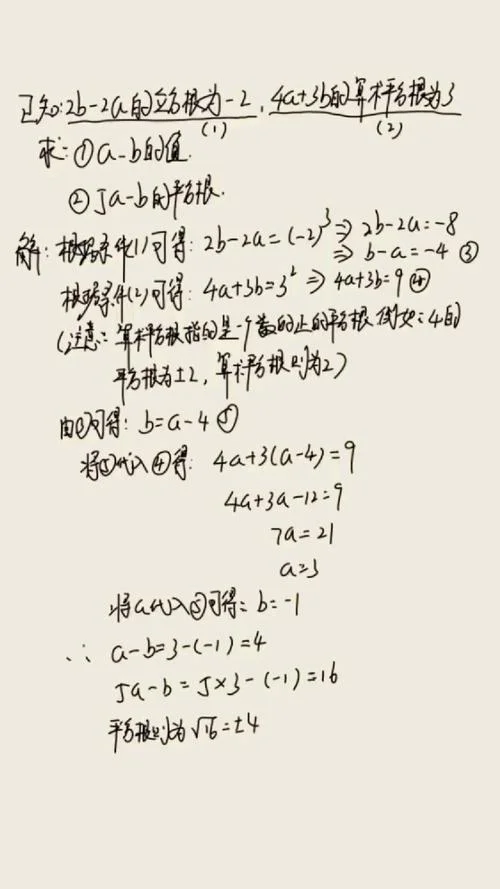 已知:2b-2a的立方根为-2,4a+3b的算术平方根为3
(1) (2)
求:①a-b的值.
②5a-b的平方根.
解:根据条件(1)可得:2b-2a=(-2)³⇒2b-2a=-8
⇒b-a=-4③
根据条件(2)可得:4a+3b=3²⇒4a+3b=9④
(注意:算术平方根指的是一个数的正的平方根 例如:4的
平方根为±2,算术平方根则为2)
由③可得:b=a-4⑤
将⑤代入④得:4a+3(a-4)=9
4a+3a-12=9
7a=21
a=3
将a代入⑤可得:b=-1
∴a-b=3-(-1)=4
5a-b=5×3-(-1)=16
平方根则为√16=±4